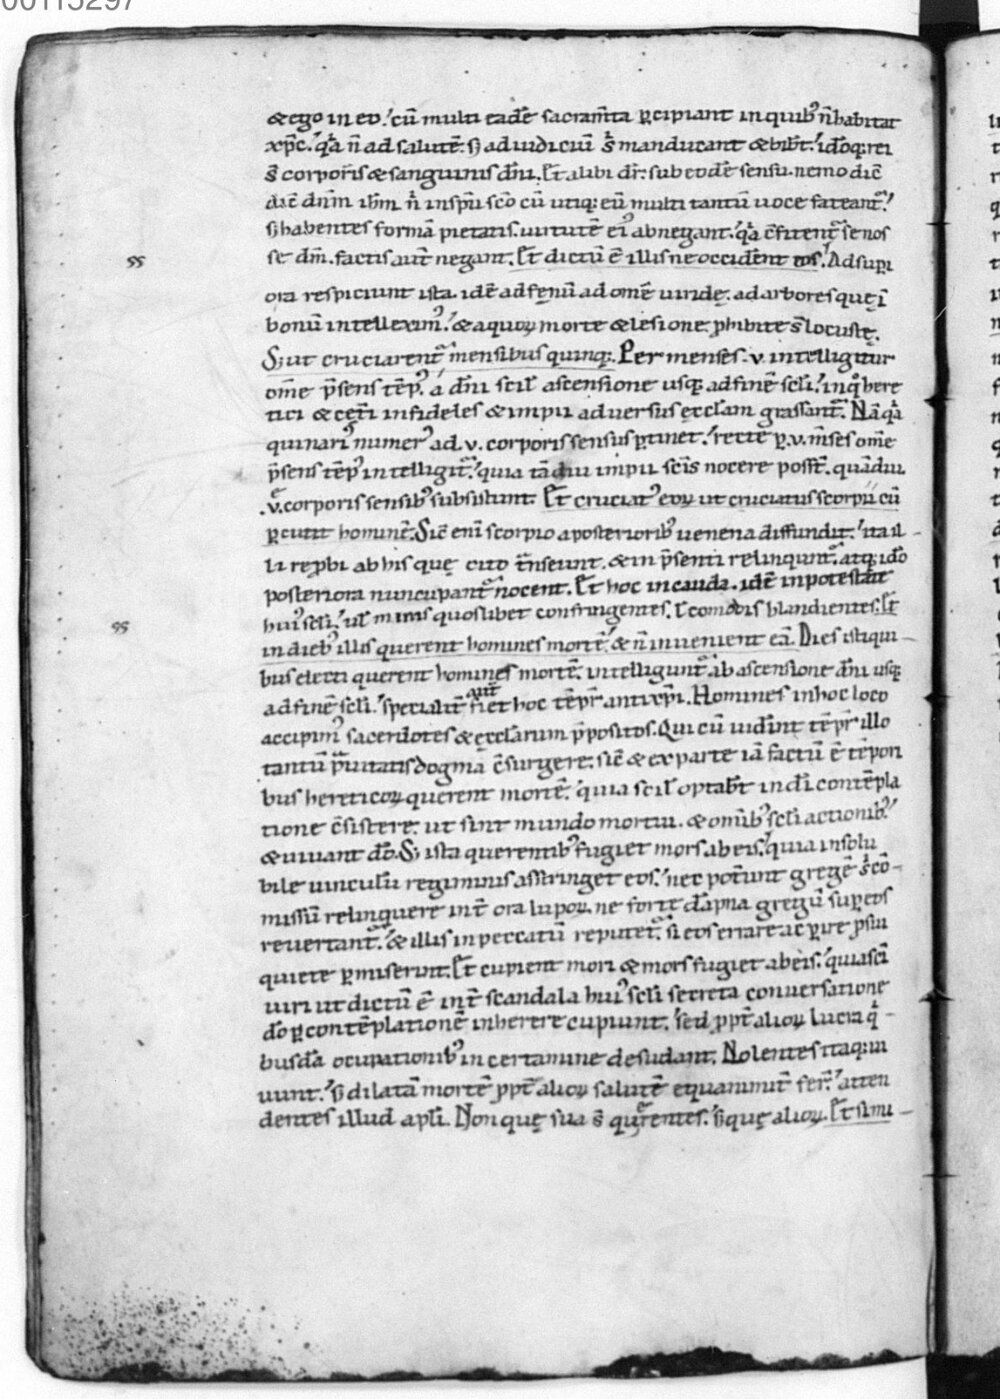 00115297
&ego in eo.' cũ multi eadẽ sacram̃ta ꝑcipiant in quibꝰ ñ habitat
xp̃c.' q̃a ñ ad salutẽ. s; ad iudiciũ s̃ manducant & bibt̃.' idõq; rei
s̃ corporis & sanguinis dñi. Et alibi dr̃. sub eodẽ sensu. nemo dic̃
dic̃ dnm̃ ihm̃ ñ in sp̃u sc̃o cũ utiq; eũ multi tantũ uoce fateant̃.'
s; habentes formã pietatis. uirtutẽ eiꝰ abnegant.' q̃a c̃fitent̃ se nos
ss
se dm̃. factis aut̃ negant. Et dictũ ẽ illis ne occident̃ eos.' Ad supi
ora respiciunt ista. idẽ ad fenũ ad omẽ uiridę. ad arbores quę ĩ
bonũ intelleximꝰ.' & a quoꝝ morte & lesione ꝓhibite s̃ locustę.
S; ut cruciarent̃ mensibus quinq;. Per menses .v. intelligitur
omẽ p̃sens tẽpꝰ a dñi scil̃ ascensione usq; ad finẽ scl̃i.' in q̊ here
tici & cet̃i infideles & impii aduersus ęccl̃am grassant̃. Nã q̃a
quinariꝰ numerꝰ ad .v. corporis sensus ꝑtinet.' recte ꝑ .v. m̃ses omẽ
p̃sens tẽpꝰ intelligit̃.' quia tã diu impii scĩs nocere posst̃. quãdiu
.v. corporis sensibꝰ subsistunt. Et cruciatꝰ eoꝝ ut cruciatus scorpii cũ
ꝑcutit hominẽ. Sic̃ enĩ scorpio a posterioribꝰ uenena diffundit.' ita il-
li reꝓbi ab his quę cito t̃nseunt. & in p̃senti relinqunt̃. atq; idõ
posteriora nuncupant̃ nocent. Et hoc in cauda. idẽ in potestate
huiꝰ scl̃i.' ul̃ minis quoslibet confringentes. l̃ comodis blandientes. Et
ss
in diebꝰ illis querent homines mortẽ.' & ñ inuenient eã. Dies isti qui-
bus electi querent homines mortẽ. intelligunt̃ ab ascensione dñi usq;
ad finẽ scl̃i.' specialit̃ aut̃ fiet hoc tẽpr̃ antixp̃i. Homines in hoc loco
accipimꝰ sacerdotes & ęccl̃arum p̃positos. Qui cũ uidint̃ tẽpr̃ illo
tantũ p̃uitatis dogma c̃surgere: sic̃ & ex parte iã factũ ẽ tẽpori
bus hereticoꝝ querent mortẽ.' quia scil̃ optabt̃ in dĩ contẽpla
tione c̃sistere: ut sint mundo mortui. & omib̃ꝰ scl̃i actionibꝰ.'
& uiuant dõ. S; ista querentibꝰ fugiet mors ab eis.' quia insolu
bile uinculũ regiminis asstringet eos.' nec pot̃unt gregẽ s; cõ-
missũ relinquere int̃ ora lupoꝝ. ne forte dãpna gregũ suꝑ eos
reuertant̃.' & illis in peccatũ reputet̃. si eos errare ac ꝑire ꝓ sui
quiete ꝑmiserint. Et cupient mori & mors fugiet ab eis.' quia scĩ
uiri ut dictũ ẽ int̃ scandala huiꝰ scl̃i secreta conuersatione
dõ ꝑ contẽplationẽ inherere cupiunt.' sed ꝓpt̃ alioꝝ lucra q̃-
busdã ocupationibꝰ in certamine desudant. Nolentes itaq; ui
uunt.' s; dilatã mortẽ ꝓpt̃ alioꝝ salutẽ equanimit̃ fer̃t.' atten
dentes illud apl̃i. Non quę sua s̃ quęrentes.' s; quę alioꝝ. Et simi-